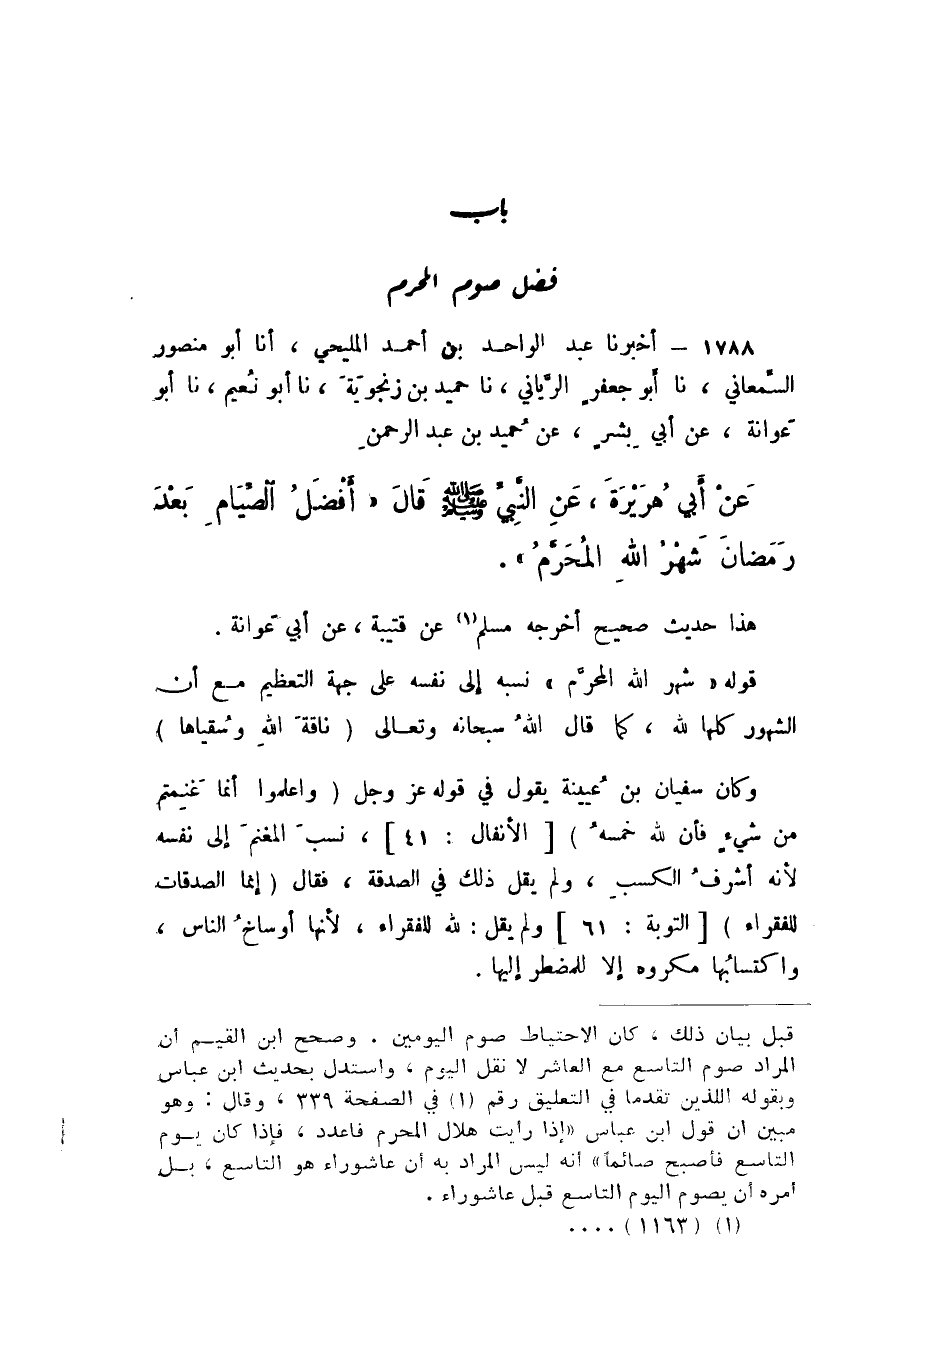 باب
فضل صوم المحرم
١٧٨٨ – أخبرنا عبد الواحد بن أحمد المليحي ، أنا أبو منصور
السَّمعاني ، نا أبو جعفرٍ الرَّياني ، نا حميد بن زنجويَةَ ، نا أبو نُعيم ، نا أبو
عَوانة ، عن أبي بِشرٍ ، عن حُميد بن عبد الرحمنِ
عَنْ أَبي هُرَيْرَةَ ، عَنِ النَّبِيِّ ﷺ قَالَ « أَفْضَلُ الصِّيَامِ بَعْدَ
رَمَضانَ شَهْرُ اللهِ المُحَرَّمُ » .
هذا حديث صحيح أخرجه مسلم(١) عن قتيبة ، عن أبي عَوانة .
قوله « شهر الله المحرَّم » نسبه إلى نفسه على جهة التعظيم مع أن
الشهور كلها لله ، كما قال اللهُ سبحانه وتعالى ( ناقةَ اللهِ وسُقياها )
وكان سفيان بن عُيينة يقول في قوله عز وجل ( واعلموا أنما غَنِمتم
من شيءٍ فأن لله خمسهُ ) [ الأنفال : ٤١ ] ، نسبَ المغنمَ إلى نفسه
لأنه أشرفُ الكسبِ ، ولم يقل ذلك في الصدقة ، فقال ( إنما الصدقات
للفقراء ) [ التوبة : ٦١ ] ولم يقل : لله للفقراء ، لأنها أوساخُ الناس ،
واكتسابُها مكروه إلا للمضطر إليها .
قبل بيان ذلك ، كان الاحتياط صوم اليومين . وصحح ابن القيم أن
المراد صوم التاسع مع العاشر لا نقل اليوم ، واستدل بحديث ابن عباس
وبقوله اللذين تقدما في التعليق رقم (١) في الصفحة ٣٣٩ ، وقال : وهو
مبين ان قول ابن عباس «إذا رأيت هلال المحرم فاعدد ، فإذا كان يوم
التاسع فأصبح صائماً» أنه ليس المراد به أن عاشوراء هو التاسع ، بل
أمره أن يصوم اليوم التاسع قبل عاشوراء .
(١) (١١٦٣) ....